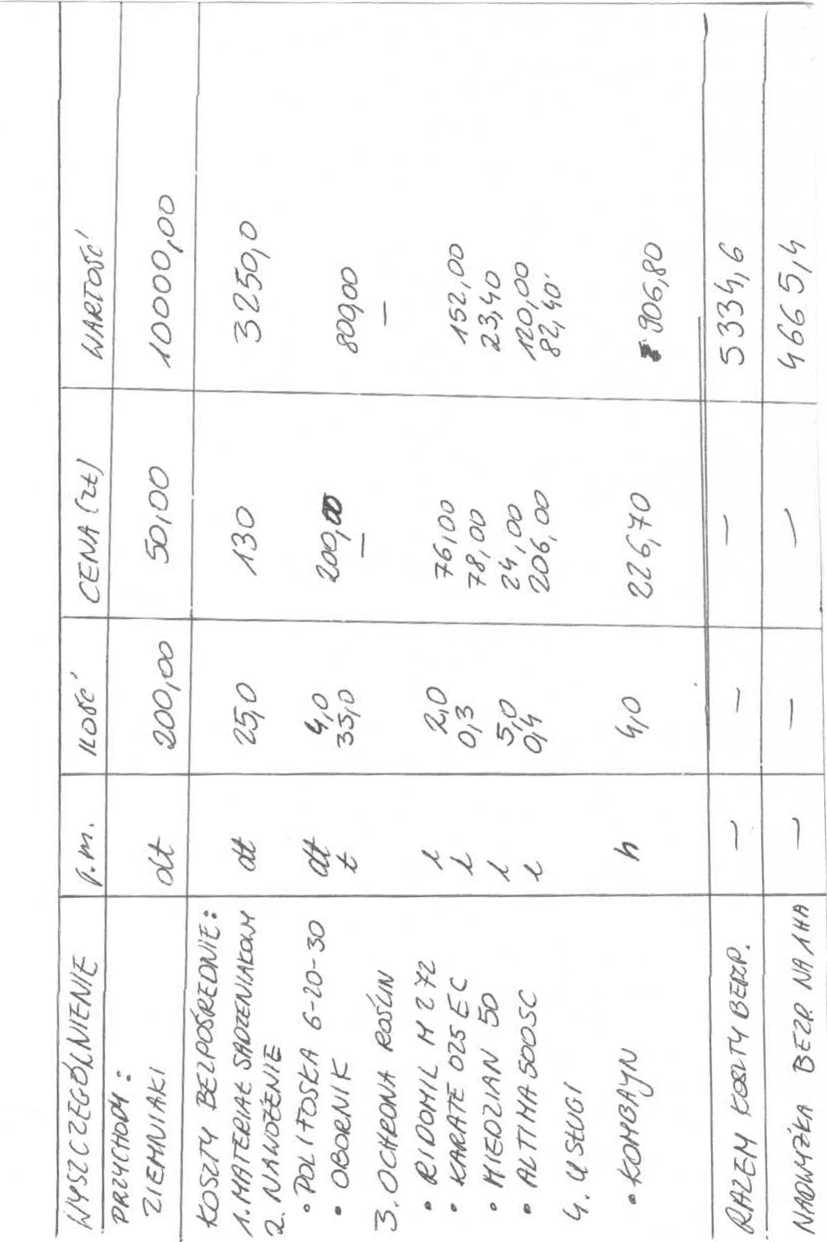 WYSZCZEGÓLNIENIE J.M. ILOŚĆ CENA (zł) WARTOŚĆ
PRZYCHODY:
ZIEMNIAKI dt 200,00 50,00 10000,00
KOSZTY BEZPOŚREDNIE:
1. MATERIAŁ SADZENIAKOWY dt 25,0 130 3250,0
2. NAWOŻENIE
• POLIFOSKA 6-20-30 dt 4,0 200,00 800,00
• OBORNIK t 35,0 — —
3. OCHRONA ROŚLIN
• RIDOMIL MZ 72 l 2,0 76,00 152,00
• KARATE 025 EC l 0,3 78,00 23,40
• MIEDZIAN 50 l 5,0 24,00 120,00
• ALTIMA 500SC l 0,4 206,00 82,40
4. USŁUGI
• KOMBAJN h 4,0 226,70 906,80
RAZEM KOSZTY BEZP. — — — 5334,6
NADWYŻKA BEZP. NA 1HA — — — 4665,4